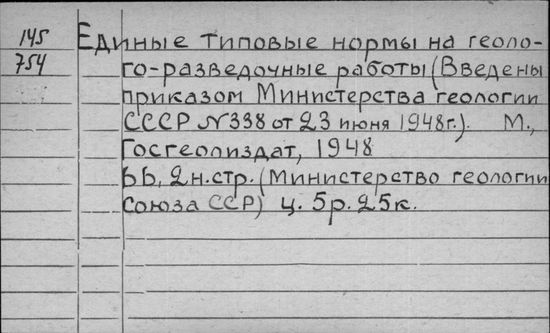 145 Единые типовые нормы на геоло-
754 го-разведочные работы (Введены
приказом Министерства геологии
СССР №338 от 23 июня 1948г.). М.,
Госгеолиздат, 1948
ЬЬ, 2н.стр. (Министерство геологии
Союза ССР) ц. 5р. 25к.